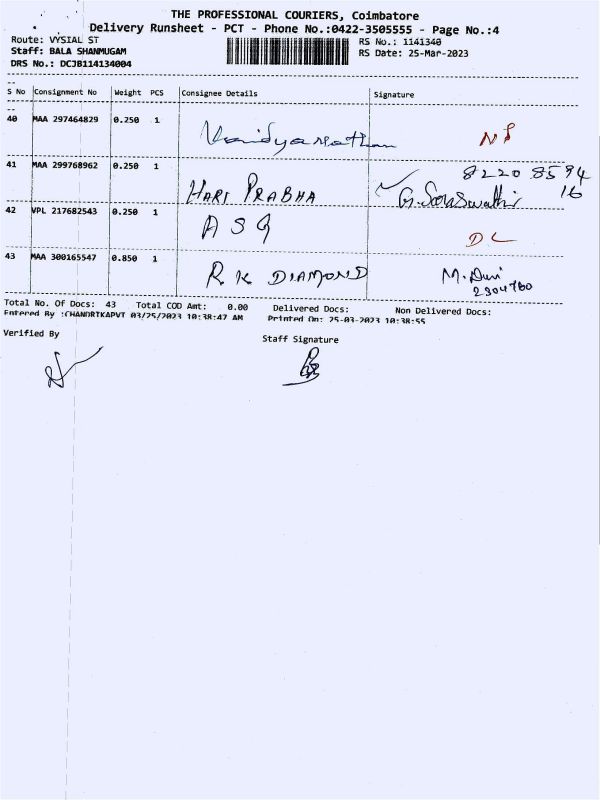 THE PROFESSIONAL COURIERS, Coimbatore
Delivery Runsheet - PCT - Phone No.:0422-3505555 - Page No.:4
Route: VYSIAL ST
RS No.: 1141340
Staff: BALA SHANMUGAM
RS Date: 25-Mar-2023
DRS No.: DCJB114134004
S No Consignment No Weight PCS Consignee Details Signature
40 MAA 297464829 0.250 1 Vaidyanathan
41 MAA 299768962 0.250 1 HARI PRABHA G. Saraswathi 8220 8594 16
42 VPL 217682543 0.250 1 A S G DL
43 MAA 300165547 0.850 1 R K DIAMOND M. Devi 2304760
Total No. Of Docs: 43 Total COD Amt: 0.00 Delivered Docs: Non Delivered Docs:
Entered By :CHANDRIKAPVT 03/25/2023 10:38:47 AM Printed On: 25-03-2023 10:38:55
Verified By
Staff Signature